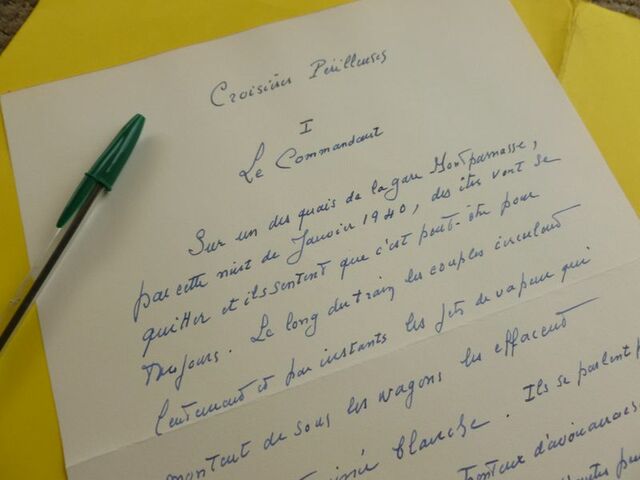 Croisières Périlleuses
I
Le Commandant
Sur un des quais de la gare Montparnasse,
par cette nuit de Janvier 1940, des êtres vont se
quitter et ils sentent que c'est peut-être pour
Toujours. Le long du train les couples circulent
lentement et par instants les jets de vapeur qui
montent de sous les wagons les effacent
blanche. Ils se parlent
d'avoir